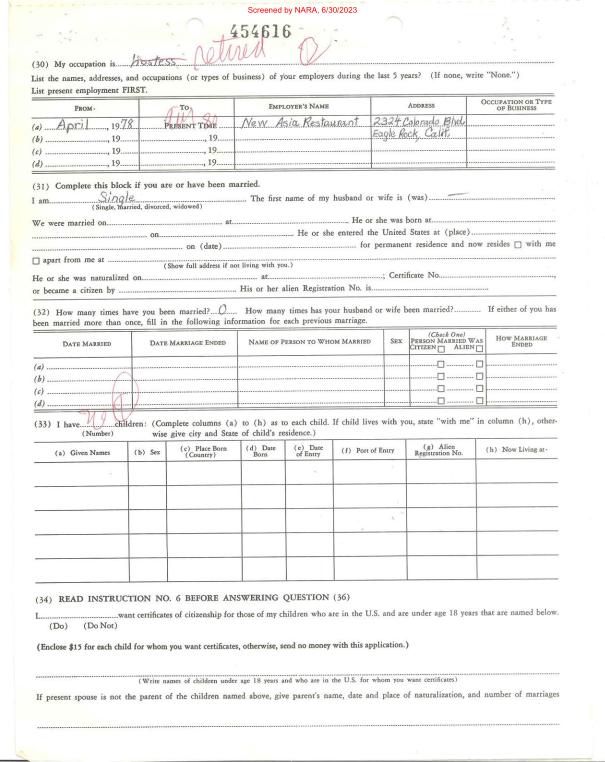 Screened by NARA, 6/30/2023
454616
(30) My occupation is hostess retired
List the names, addresses, and occupations (or types of business) of your employers during the last 5 years? (If none, write "None.")
List present employment FIRST.
FROM- TO EMPLOYER'S NAME ADDRESS OCCUPATION OR TYPE OF BUSINESS
(a) April, 1978 PRESENT TIME New Asia Restaurant 2324 Colorado Blvd,
Eagle Rock, Calif.
(b) , 19 , 19
(c) , 19 , 19
(d) , 19 , 19
(31) Complete this block if you are or have been married.
I am Single The first name of my husband or wife is (was) —
(Single, married, divorced, widowed)
We were married on at He or she was born at
on He or she entered the United States at (place)
on (date) for permanent residence and now resides ☐ with me
☐ apart from me at
(Show full address if not living with you.)
He or she was naturalized on at ; Certificate No. ,
or became a citizen by His or her alien Registration No. is
(32) How many times have you been married? 0 How many times has your husband or wife been married? If either of you has
been married more than once, fill in the following information for each previous marriage.
DATE MARRIED DATE MARRIAGE ENDED NAME OF PERSON TO WHOM MARRIED SEX (Check One) PERSON MARRIED WAS CITIZEN ☐ ALIEN ☐ HOW MARRIAGE ENDED
(a) ☐ ☐
(b) ☐ ☐
(c) ☐ ☐
(d) ☐ ☐
(33) I have children: (Complete columns (a) to (h) as to each child. If child lives with you, state "with me" in column (h), other-
(Number) wise give city and State of child's residence.)
(a) Given Names (b) Sex (c) Place Born (Country) (d) Date Born (e) Date of Entry (f) Port of Entry (g) Alien Registration No. (h) Now Living at-
(34) READ INSTRUCTION NO. 6 BEFORE ANSWERING QUESTION (36)
I, want certificates of citizenship for those of my children who are in the U.S. and are under age 18 years that are named below.
(Do) (Do Not)
(Enclose $15 for each child for whom you want certificates, otherwise, send no money with this application.)
(Write names of children under age 18 years and who are in the U.S. for whom you want certificates)
If present spouse is not the parent of the children named above, give parent's name, date and place of naturalization, and number of marriages